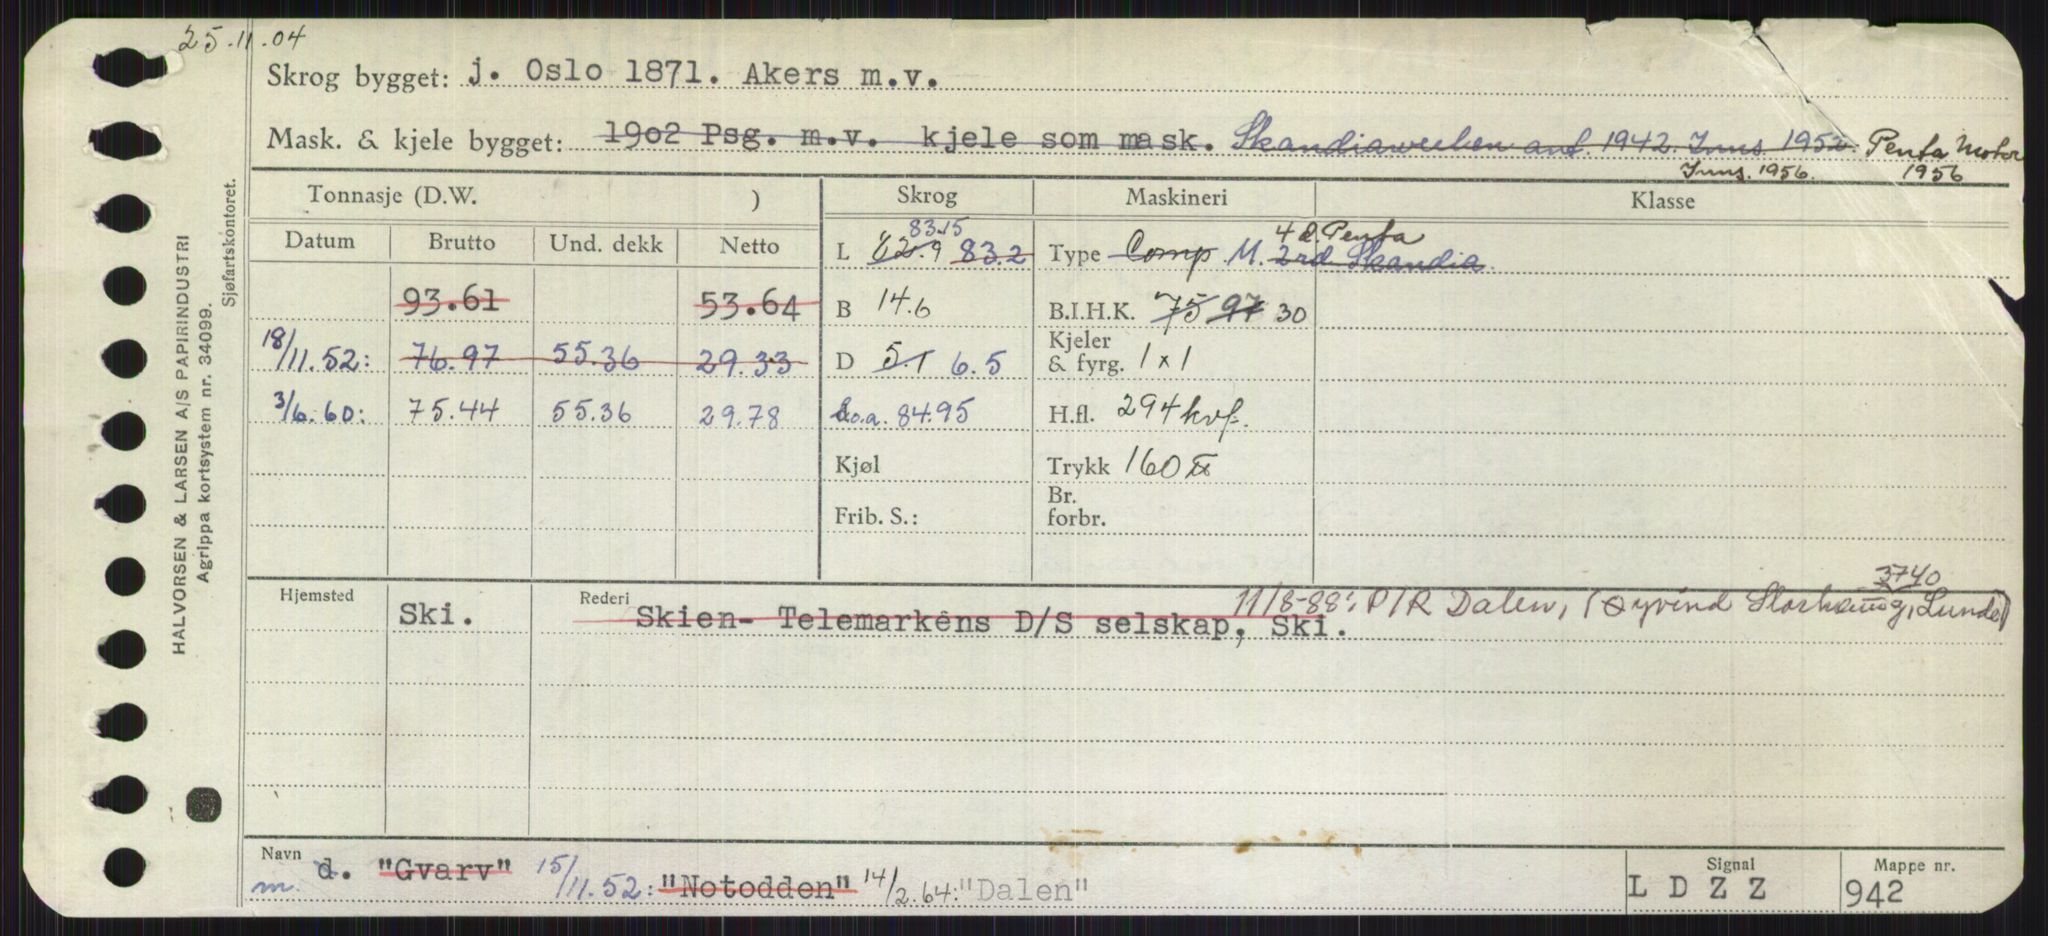 25.11.04
Skrog bygget: j. Oslo 1871. Akers m.v.
Mask. & kjele bygget: 1902 Psg. m.v. kjele som mask. 1942. Inns 1952. Penta Motor
Inns. 1956. 1956
Tonnasje (D.W. ) Skrog Maskineri Klasse
Datum Brutto Und. dekk Netto
83.15
L 82.9 83.2
4 d. Penta
Type Comp M. 2rd Skandia
93.61 53.64
B 14.6
B.I.H.K. 75 97 30
18/11.52: 76.97 55.36 29.33
D 5.1 6.5
Kjeler & fyrg. 1 x 1
3/6.60: 75.44 55.36 29.78
L.o.a. 84.95
H.fl. 294 kvf.
Kjøl
Trykk 160 ℔
Frib. S.:
Br. forbr.
Hjemsted
Ski.
Rederi
3740
11/8-88: P/R Dalen, (Øyvind Lunde)
Skien- Telemarkens D/S selskap, Ski.
Navn
m. d. "Gvarv" 15/11.52: "Notodden" 14/2.64: "Dalen"
Signal
L D Z Z
Mappe nr.
942
HALVORSEN & LARSEN A/S PAPIRINDUSTRI
Agrippa kortsystem nr. 34099.
Sjøfartskontoret.